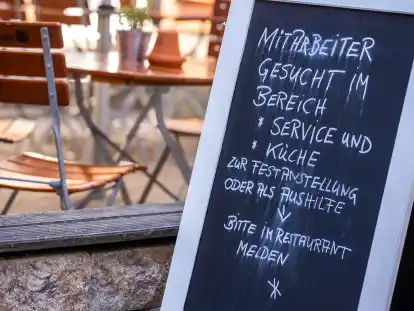 MITARBEITER
GESUCHT IM
BEREICH
* SERVICE UND
* KÜCHE
ZUR FESTANSTELLUNG
ODER ALS AUSHILFE
BITTE IM RESTAURANT
MELDEN